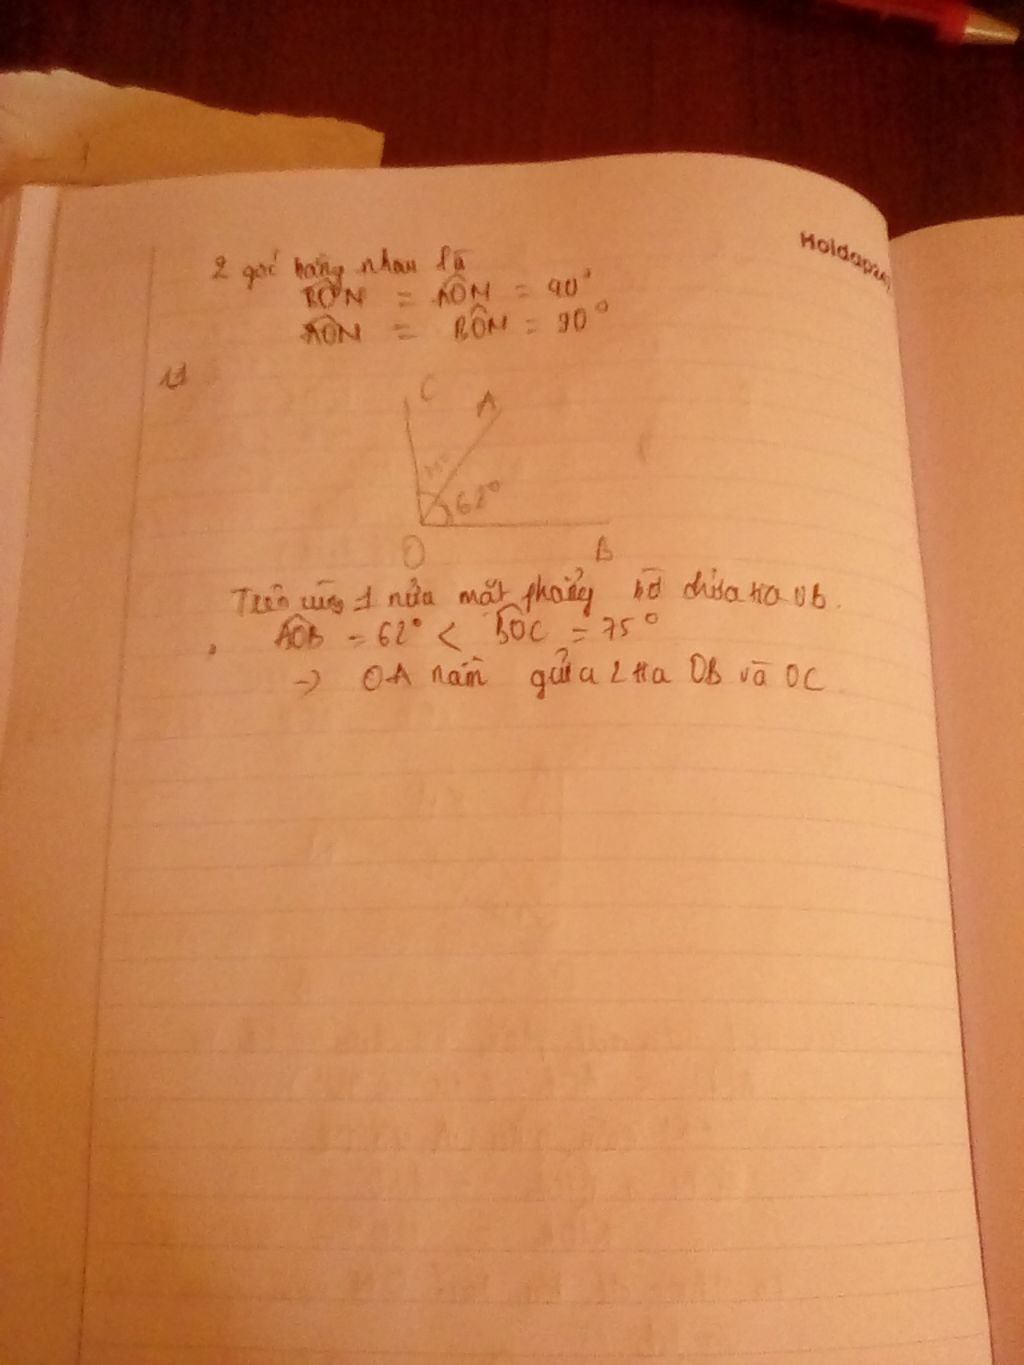 Holdap
2 góc bằng nhau là
BÔN = AÔM = 90°
AÔN = BÔM = 90°
11
C A
62°
O B
Trên cùng 1 nửa mặt phẳng bờ chứa tia OB.
AÔB = 62° < BÔC = 75°
-> OA nằm giữa 2 tia OB và OC